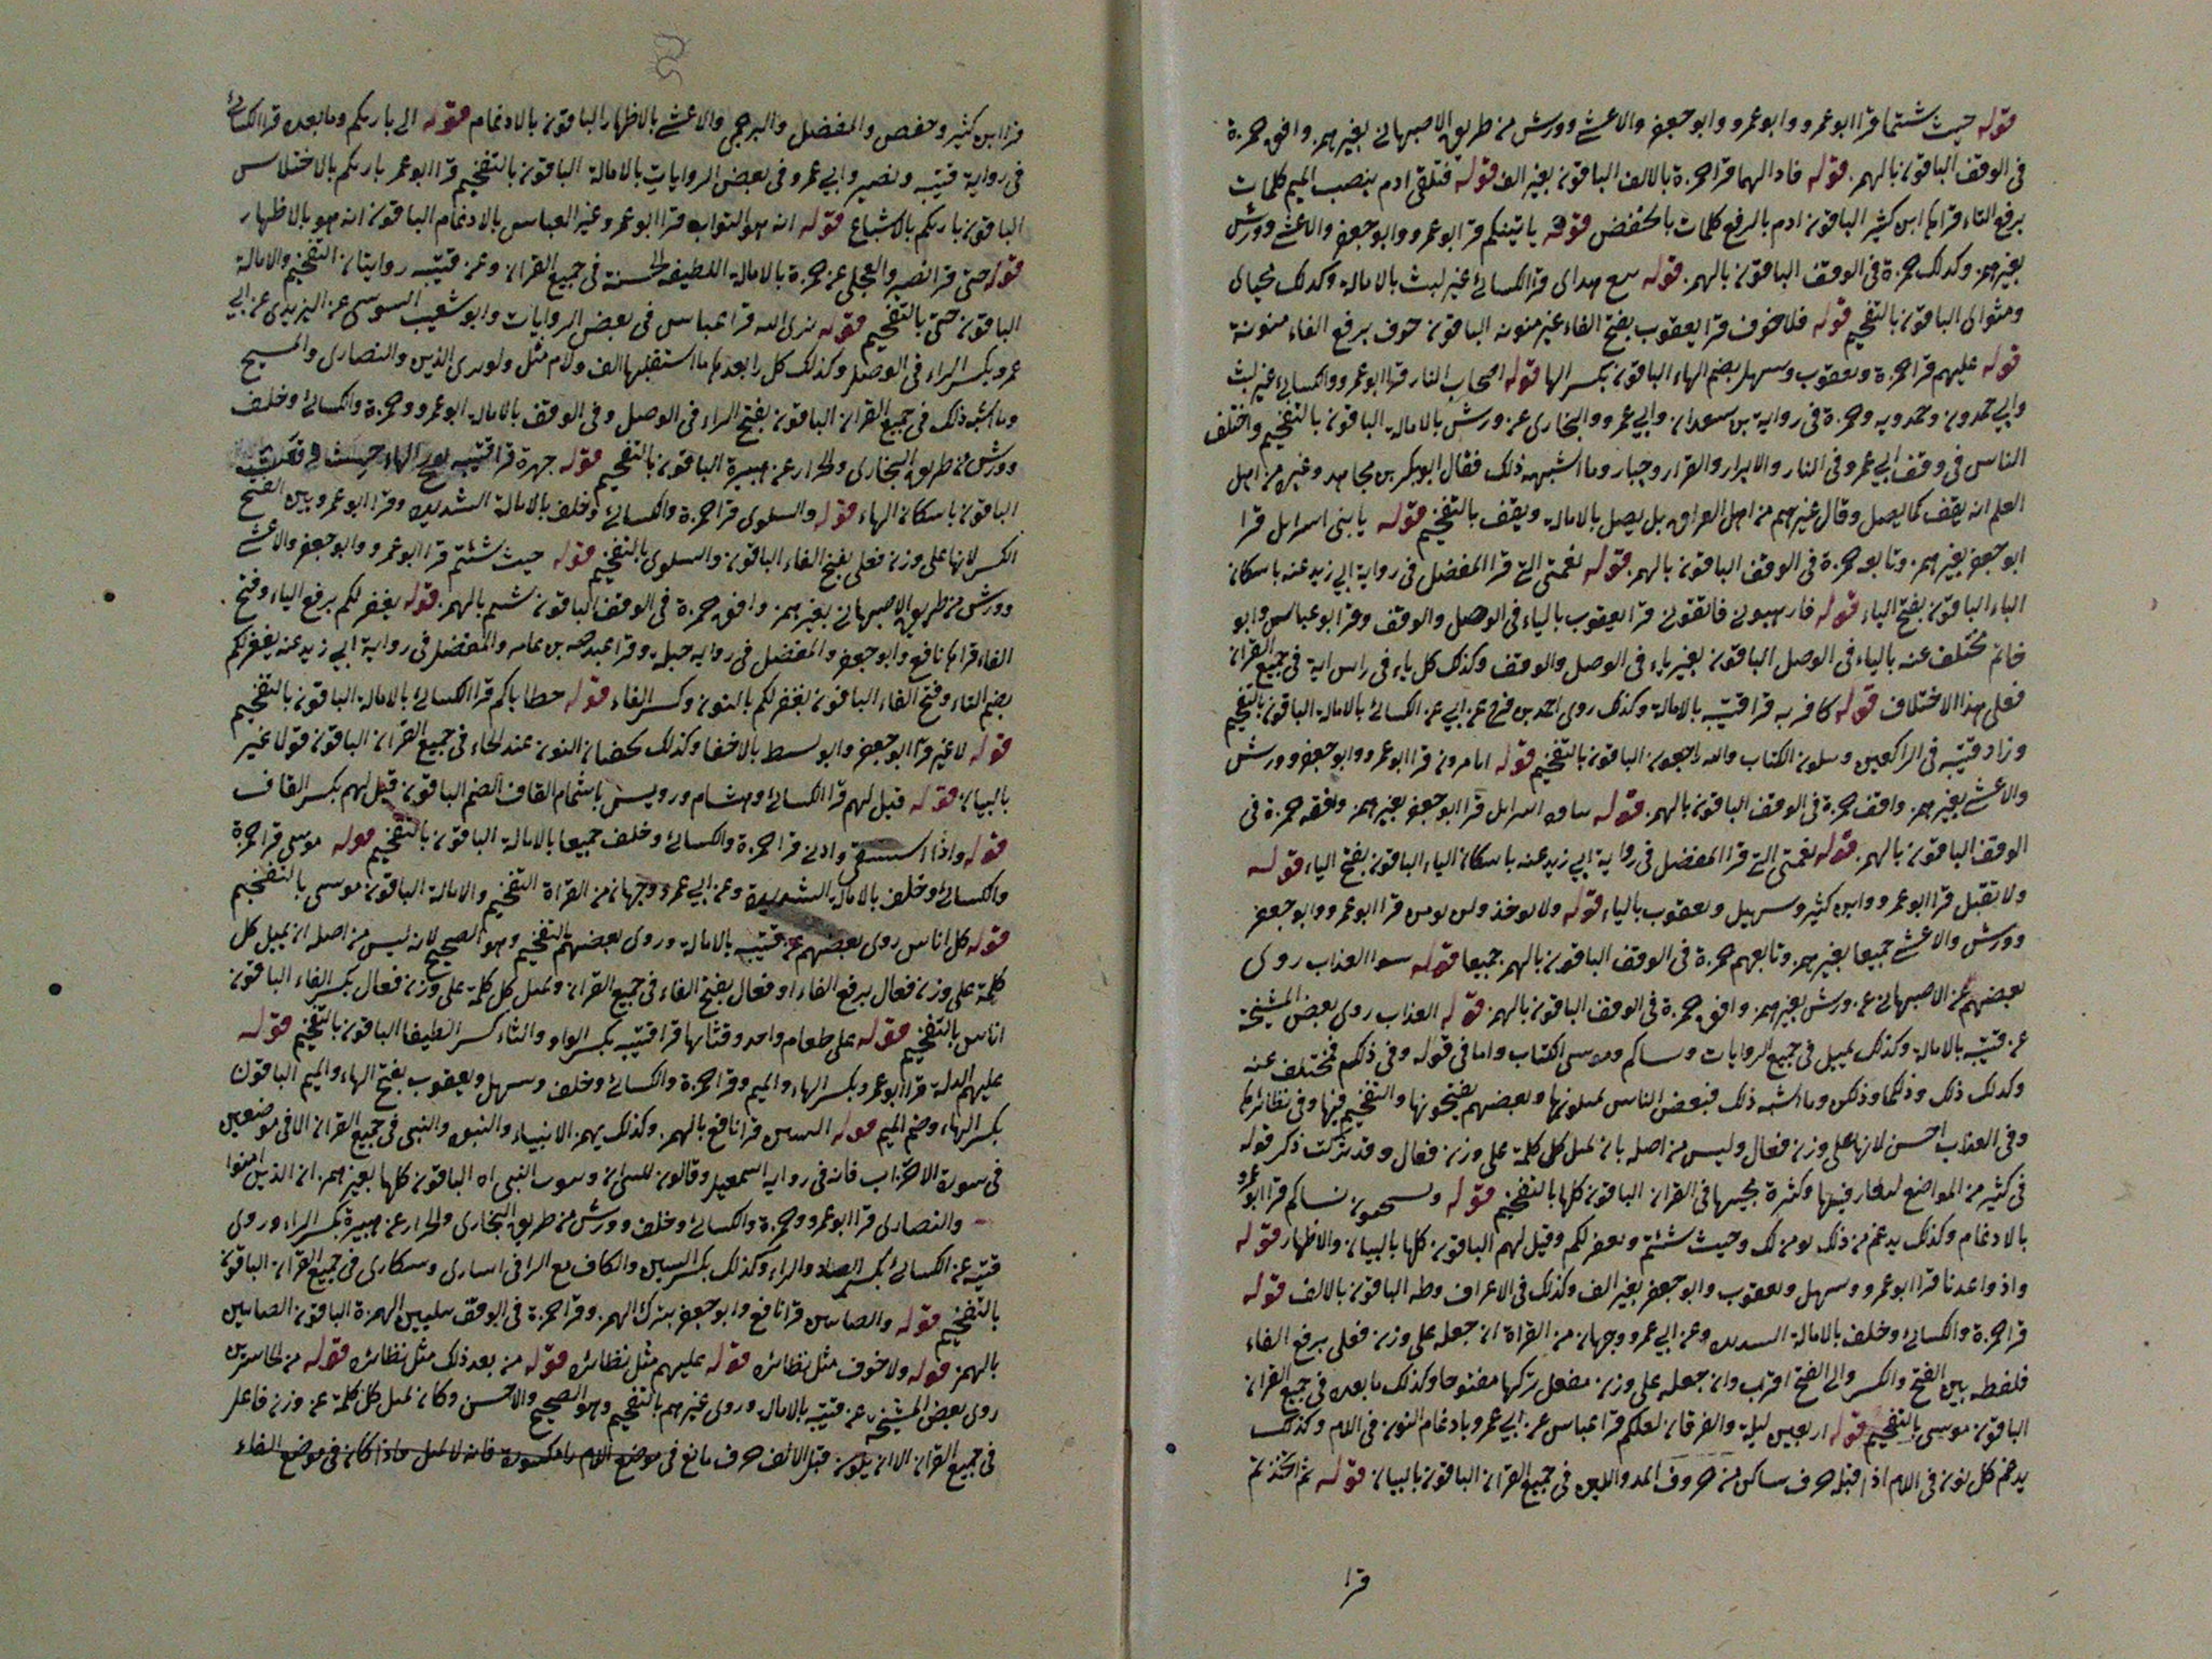 قوله حيث شئتما قرا ابو عمرو وابو عمرو وابو جعفر والاعشى وورش من طريق الاصبهانى بغير همز وافق حمزة
فى الوقف الباقون بالهمز قوله فازالهما قرا حمزة بالالف الباقون بغير الف قوله فتلقى ادم بنصب الميم كلمات
برفع التاء قراها ابن كثير الباقون ادم بالرفع كلمات بالخفض قوله ياتينكم قرا ابو عمرو وابو جعفر والاعشى وورش
بغير همز وكذلك حمزة فى الوقف الباقون بالهمز قوله تبع هداى قرا الكسائى غير ليث بالامالة وكذلك محياى
ومثواى الباقون بالتفخيم قوله فلا خوف قرا يعقوب بفتح الفاء غير منونه الباقون خوف برفع الفاء منونة
قوله عليهم قرا حمزة ويعقوب وسهل بضم الهاء الباقون بكسر الها قوله اصحاب النار قرا ابو عمرو والكسائى غير ليث
وابى حمدون وحمدويه وحمزة فى رواية بن سعدان وابى عمرو والبخارى عن ورش بالامالة الباقون بالتفخيم واختلف
الناس فى وقف ابى عمرو فى النار والابرار والقرار وجبار وما اشبهه ذلك فقال ابو بكر بن مجاهد وغيره من اهل
العلم انه يقف كما يصل وقال غيرهم من اهل العراق بل يصل بالامالة ويقف بالتفخيم قوله يا بنى اسرايل قرا
ابو جعفر بغير همز وتابعه حمزة فى الوقف الباقون بالهمز قوله نعمتى التى قرا المفضل فى رواية ابى زيد عنه باسكان
الياء الباقون بفتح الياء قوله فارهبونى فاتقونى قرا يعقوب بالياء فى الوصل والوقف وقرا ابو عباس وابو
حاتم مختلف عنه بالياء فى الوصل الباقون بغير ياء فى الوصل والوقف وكذلك كل ياء فى راس اية فى جميع القران
فعلى هذا الاختلاف قوله كافر به قرا قتيبه بالامالة وكذلك روى احمد بن فرح عن ابى عن الكسائى بالامالة الباقون بالتفخيم
وزاد قتيبه فى الراكعين وتتلون الكتاب واليه راجعون الباقون بالتفخيم قوله اتامرون قرا ابو عمرو وابو جعفر وورش
والاعشى بغير همز وافقه حمزة فى الوقف الباقون بالهمز قوله يا بنى اسرايل قرا ابو جعفر بغير همز وافقه حمزة فى
الوقف الباقون بالهمز قوله نعمتى التى قرا المفضل فى رواية ابى زيد عنه باسكان الياء الباقون بفتح الياء قوله
ولا تقبل قرا ابو عمرو وابن كثير وسهيل ويعقوب بالياء قوله ولا يوخذ ولن نومن قرا ابو عمرو وابو جعفر
وورش والاعشى جميعا بغير همز وتابعهم حمزة فى الوقف الباقون بالهمز جميعا قوله سوا العذاب روى
بعضهم عن الاصبهانى عن ورش بغير همز وافق حمزة فى الوقف الباقون بالهمز قوله العذاب روى بعض المشيخة
عن قتيبه بالامالة وكذلك يميل فى جميع الروايات ونساكم وموسى الكتاب واما فى قوله وفى ذلكم فمختلف عنه
وكذلك ذلك وذلكما وذلكن وما اشبه ذلك فبعض الناس يميلونها وبعضهم يفتحونها والتفخيم فيها وفى نظائرها
وفى العذاب احسن لانها على وزن فعال وليس من اصله بان يميل كل كلمة على وزن فعال وقد تركت ذكر قوله
فى كثير من المواضع فيها وكثرة مجيئها فى القران الباقون كلها بالتفخيم قوله ويستحيون نساكم قرا ابو عمرو
بالادغام وكذلك يدغم من ذلك نومن لك وحيث شئتم ونغفر لكم وقيل لهم الباقون كلها بالبيان والاظهار قوله
واذ واعدنا قرا ابو عمرو وسهل ويعقوب وابو جعفر بغير الف وكذلك فى الاعراف وطه الباقون بالالف قوله
قرا حمزة والكسائى وخلف بالامالة الشديدة وعن ابى عمرو وجهان من القراة ان جعله على وزن فعلى برفع الفاء
فلفظه بين الفتح والكسر والى الفتح اقرب وان جعله على وزن مفعل تركها مفتوحا وكذلك ما بعده فى جميع القران
الباقون موسى بالتفخيم قوله اربعين ليلة والفرقان لعلكم قرا عباس عن ابى عمرو بادغام النون فى اللام وكذلك
يدغم كل نون فى اللام اذا قبله حرف ساكن من حروف المد واللين فى جميع القران الباقون بالبيان قوله ثم اتخذتم
قرا
قرا ابن كثير وحفص والمفضل والبرجمى والاعشى بالاظهار الباقون بالادغام قوله الى باريكم وما بعده قرا الكسائى
فى رواية قتيبه ونصير وابى عمرو فى بعض الروايات بالامالة الباقون بالتفخيم قرا ابو عمر باريكم بالاختلاس
الباقون باريكم بالاشباع قوله انه هو التواب قرا ابو عمرو غير العباس بالادغام الباقون انه هو بالاظهار
قوله حتى قرا نصير والعجلى عن حمزة بالامالة اللطيفه الحسنة فى جميع القران وعن قتيبه روايتان التفخيم والامالة
الباقون حتى بالتفخيم قوله نرى الله قرا عباس فى بعض الروايات وابو شعيب السوسى عن اليزيدى عن ابى
عمرو بكسر الراء فى الوصل وكذلك كل را بعدها ما استقبلها الف ولام مثل ولو يرى الذين والنصارى والمسيح
وما اشبه ذلك فى جميع القران الباقون بفتح الراء فى الوصل وفى الوقف بالامالة ابو عمرو وحمزة والكسائى وخلف
وورش من طريق البخارى والخزاز عن هبيرة الباقون بالتفخيم قوله جهرة قرا قتيبه بفتح الهاء حيث
الباقون باسكان الهاء قوله والسلوى قرا حمزة والكسائى وخلف بالامالة الشديدة وقرا ابو عمرو بين الفتح
الكسر لانها على وزن فعلى بفتح الفاء الباقون والسلوى بالتفخيم قوله حيث شئتم قرا ابو عمرو وابو جعفر والاعشى
وورش من طريق الاصبهانى بغير همز وافق حمزة فى الوقف الباقون شيتم بالهمز قوله يغفر لكم برفع الياء وفتح
الفاء قراها نافع وابو جعفر والمفضل فى رواية جبلة وقرا عبد الله بن عامر والمفضل فى رواية ابى زيد عنه يغفر لكم
بضم التاء وفتح الفاء الباقون نغفر لكم بالنون وكسر الفاء قوله خطاياكم قرا الكسائى بالامالة الباقون بالتفخيم
قوله لاغير قرا ابو جعفر وابو نشيط بالاخفا وكذلك يخفيان النون عند الخاء فى جميع القران الباقون قولا غير
بالبيان قوله قيل لهم قرا الكسائى وهشام ورويس باشمام القاف الضم الباقون قيل لهم بكسر القاف
قوله واذا استسقى وادنى قرا حمزة والكسائى وخلف جميعا بالامالة الباقون بالتفخيم قوله موسى قرا حمزة
والكسائى وخلف بالامالة الشديدة وعن ابى عمرو وجهان من القراة التفخيم والامالة الباقون موسى بالتفخيم
قوله كل اناس روى بعضهم عن قتيبه بالامالة وروى بعضهم بالتفخيم وهو الصحيح لانه ليس من اصله ان يميل كل
كلمة على وزن فعال برفع الفاء او فعال بفتح الفاء فى جميع القران ويميل كل كلمة على وزن فعال بكسر الفاء الباقون
اناس بالتفخيم قوله على طعام واحد وقثائها قرا قتيبه بكسر الواو والثاء كسرا لطيفا الباقون بالتفخيم قوله
عليهم الذلة قرا ابو عمرو بكسر الهاء والميم وقرا حمزة والكسائى وخلف وسهل ويعقوب بفتح الهاء والميم الباقون
بكسر الهاء وضم الميم قوله النبيين قرا نافع بالهمز وكذلك يهمز الانبياء والنبيون والنبى فى جميع القران الا فى موضعين
فى سورة الاحزاب فانه فى رواية اسمعيل وقالون للنبى ان وبيوت النبى الا الباقون كلها بغير همز ان الذين امنوا
والنصارى قرا ابو عمرو وحمزة والكسائى وخلف وورش من طريق البخارى والخزاز عن هبيرة بكسر الراء وروى
قتيبه عن الكسائى بكسر الصاد والراء وكذلك بكسر السين والكاف مع الرا فى اسارى وسكارى فى جميع القران الباقون
بالتفخيم قوله والصابين قرا نافع وابو جعفر بترك الهمز وقرا حمزة فى الوقف بتليين الهمزة الباقون الصابيين
بالهمز قوله ولا خوف مثل نظائره قوله عليهم مثل نظائره قوله من بعد ذلك مثل نظائره قوله من الخاسرين
روى بعض المشيخه عن قتيبه بالامالة وروى غيرهم بالتفخيم وهو الصحيح والاحسن وكان يميل كل كلمة عن وزن فاعل
فى جميع القران الا ان يكون قبل الالف حرف مانع فى موضع اللام فانه لا يميل واذا كان فى موضع الفاء